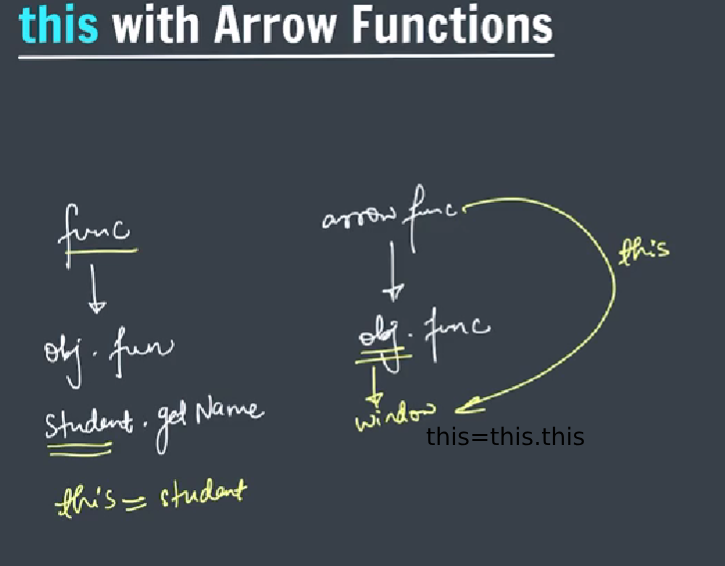 this with Arrow Functions
func
obj. fun
student. getName
this = student
arrow func
this
obj. func
window
this=this.this